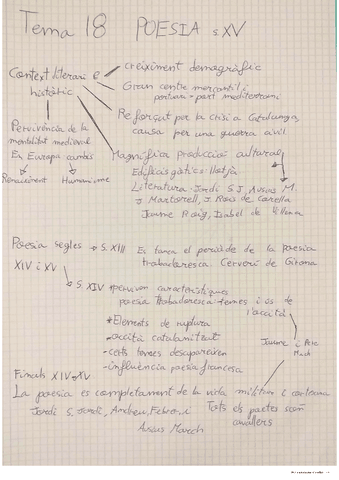 Tema 18 POESIA s.XV
Context literari e
històric
creiximent demogràfic
Gran centre mercantil i
portuari part mediterrani
Reforçat per la crisi a Catalunya,
causa per una guerra civil
Pervivència de la
mentalitat medieval
En Europa cambis
Renaiximent Humanisme
Magnífica producció cultural
Edificis gòtics: llotja
Literatura: Jordi S J, Ausias M.
J Martorell, J. Roís de Corella
Jaume Roig, Isabel de Villena
Poesia segles
XIV i XV
S. XIII Es tanca el període de la poesia
trobadoresca. Cerverí de Girona
S. XIV perviuen característiques
poesia trobadoresca temes i ús de
l'occità
*Elements de ruptura
-occità catalanitzat
-certs temes desapareixen
-influència poesia francesa
Jaume i Pere
March
Finals XIV-XV
La poesia és completament de la vida militar i cortesana
Jordi S. Jordi, Andreu Febrer i
Ausias March
Tots els poetes són
cavallers